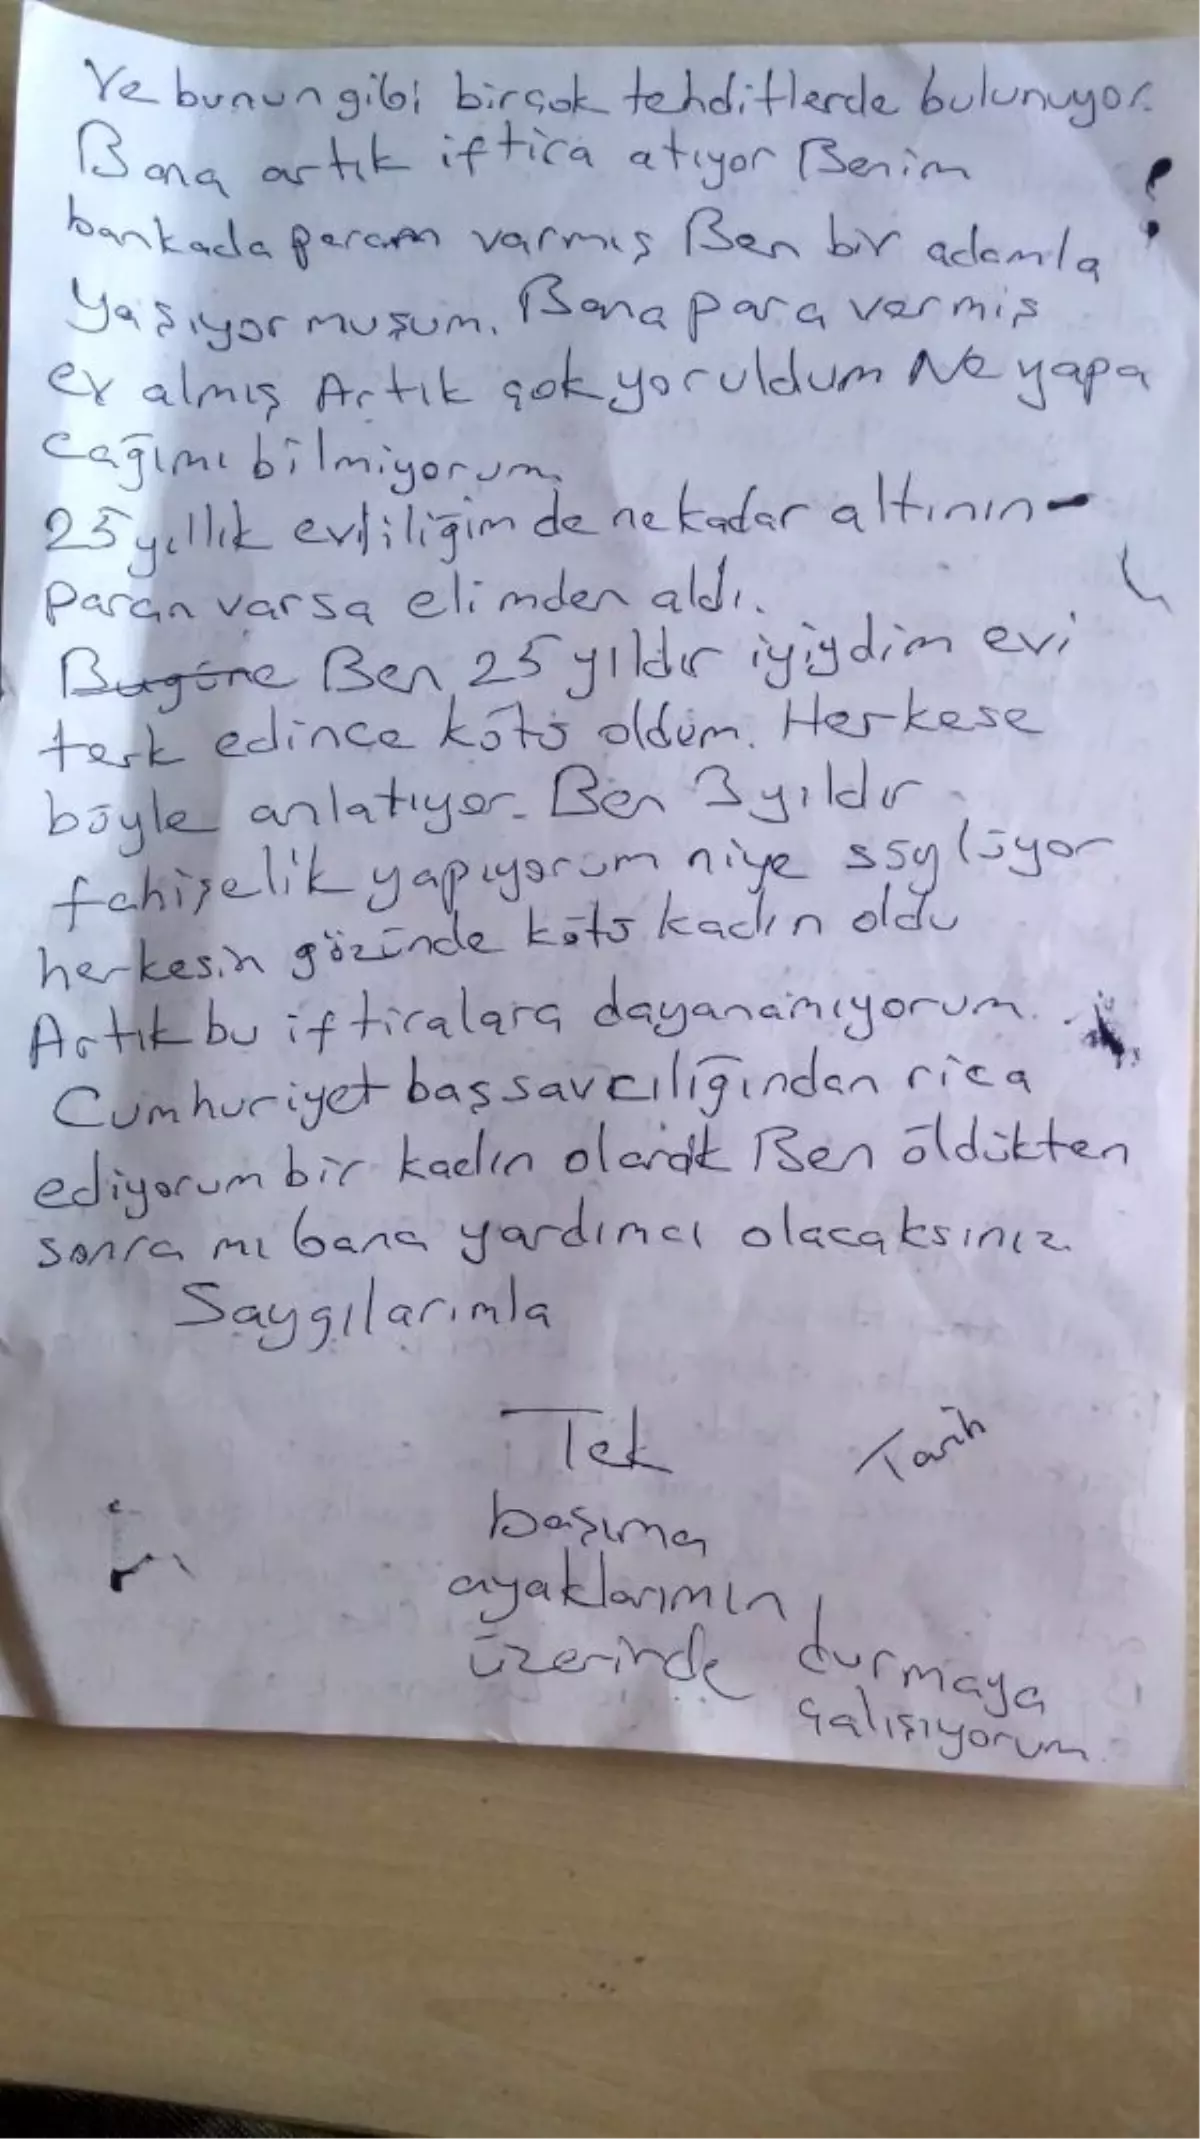 Ve bunun gibi birçok tehditlerde bulunuyor.
Bana artık iftira atıyor Benim
bankada param varmış Ben bir adamla
yaşıyormuşum. Bana para vermiş
ev almış Artık çok yoruldum Ne yapa
cağımı bilmiyorum.
25 yıllık evliliğimde ne kadar altının-
paran varsa elimden aldı.
Bugüne Ben 25 yıldır iyiydim evi
terk edince kötü oldum. Herkese
böyle anlatıyor. Ben 3 yıldır
fahişelik yapıyorum niye söylüyor
herkesin gözünde kötü kadın oldu
Artık bu iftiralara dayanamıyorum.
Cumhuriyet başsavcılığından rica
ediyorum bir kadın olarak Ben öldükten
sonra mı bana yardımcı olacaksınız.
Saygılarımla
Tek
Tarih
başıma
ayaklarımın
üzerinde durmaya
çalışıyorum.